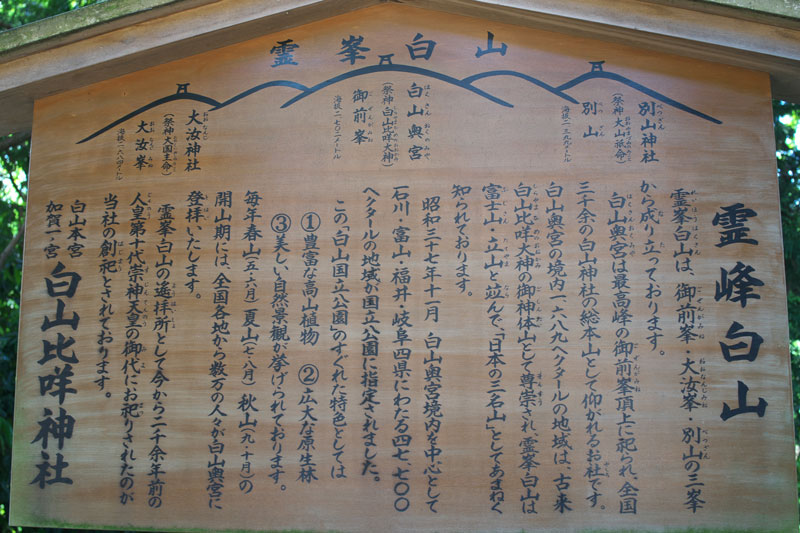 霊峯白山
別山神社
(祭神 大山祇命)
別山
海抜二、三九九メートル
白山奥宮
(祭神 白山比咩大神)
御前峯
海抜二、七〇二メートル
大汝神社
(祭神 大国主命)
大汝峯
海抜二、六八四メートル
霊峰白山
霊峯白山は、御前峯・大汝峯・別山の三峯
から成り立っております。
白山奥宮は最高峰の御前峯頂上に祀られ、全国
三千余の白山神社の総本山として仰がれるお社です。
白山奥宮の境内一六八九ヘクタールの地域は、古来
白山比咩大神の御神体山として尊崇され、霊峯白山は
富士山・立山と並んで、「日本の三名山」としてあまねく
知られております。
昭和三十七年十一月 白山奥宮境内を中心として
石川・富山・福井・岐阜四県にわたる四七、七〇〇
ヘクタールの地域が国立公園に指定されました。
この「白山国立公園」のすぐれた特色としては
①豊富な高山植物 ②広大な原生林
③美しい自然景観が挙げられております。
毎年春山(五・六月) 夏山(七・八月) 秋山(九・十月)の
開山期には、全国各地から数万の人々が白山奥宮に
登拝いたします。
霊峯白山の遙拝所として今から二千余年前の
人皇第十代崇神天皇の御代にお祀りされたのが
当社の創祀とされております。
白山本宮
加賀一ノ宮
白山比咩神社